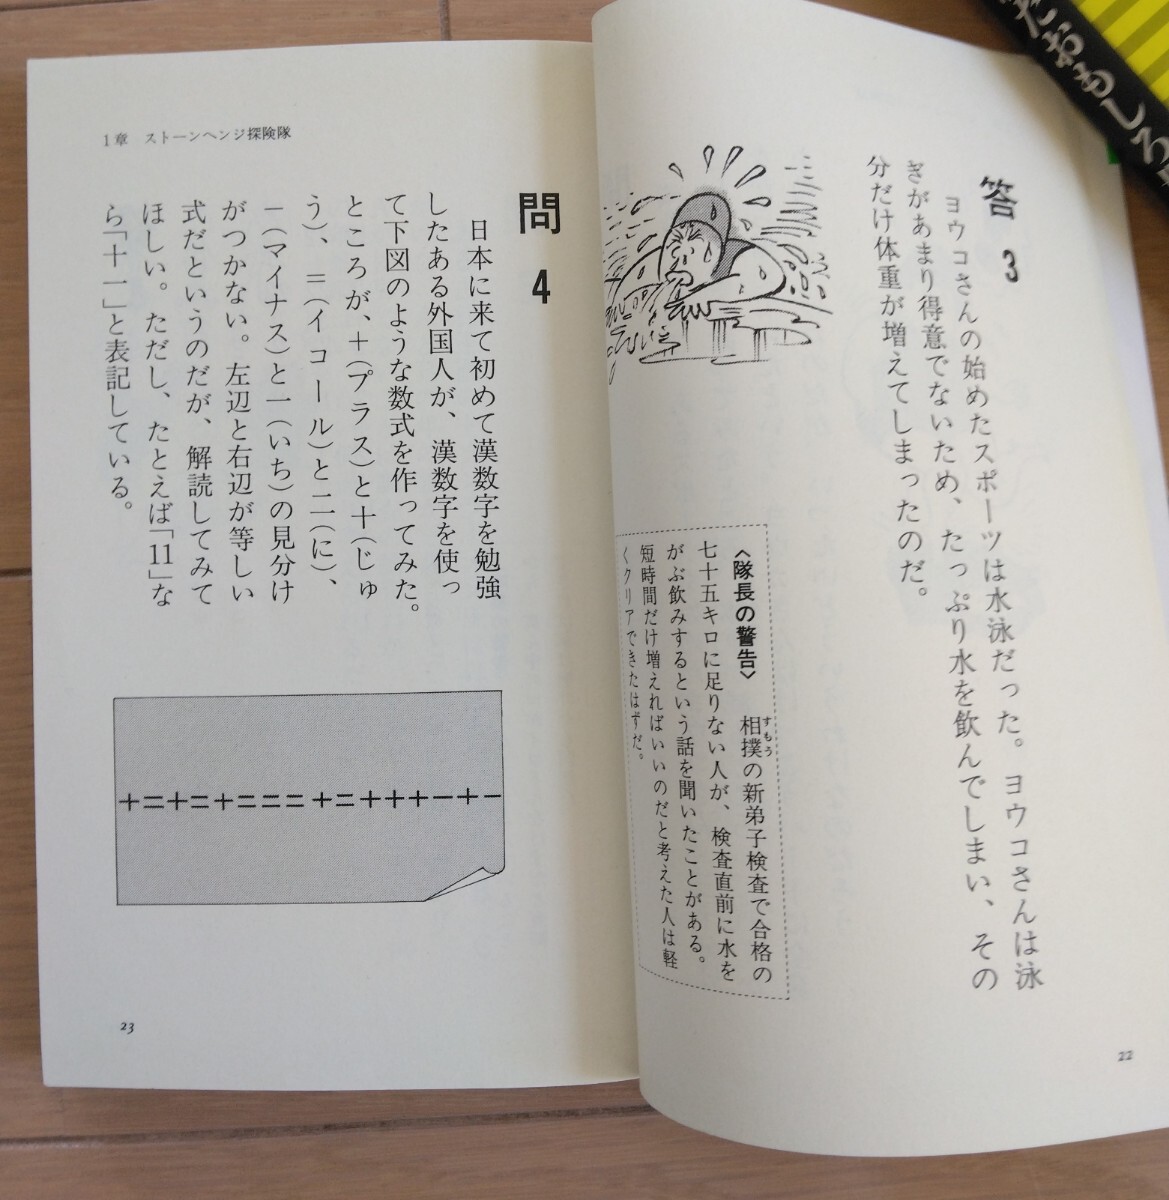 たおもしろ
答3
ヨウコさんの始めたスポーツは水泳だった。ヨウコさんは泳
ぎがあまり得意でないため、たっぷり水を飲んでしまい、その
分だけ体重が増えてしまったのだ。
〈隊長の警告〉 相撲の新弟子検査で合格の
すもう
七十五キロに足りない人が、検査直前に水を
がぶ飲みするという話を聞いたことがある。
短時間だけ増えればいいのだと考えた人は軽
くクリアできたはずだ。
22
1章 ストーンヘンジ探険隊
問4
日本に来て初めて漢数字を勉強
したある外国人が、漢数字を使っ
て下図のような数式を作ってみた。
ところが、＋(プラス)と十(じゅ
う)、＝(イコール)と二(に)、
－(マイナス)と一(いち)の見分け
がつかない。左辺と右辺が等しい
式だというのだが、解読してみて
ほしい。ただし、たとえば「11」な
ら「十一」と表記している。
十二十二十二二二十二十十十一十一
23